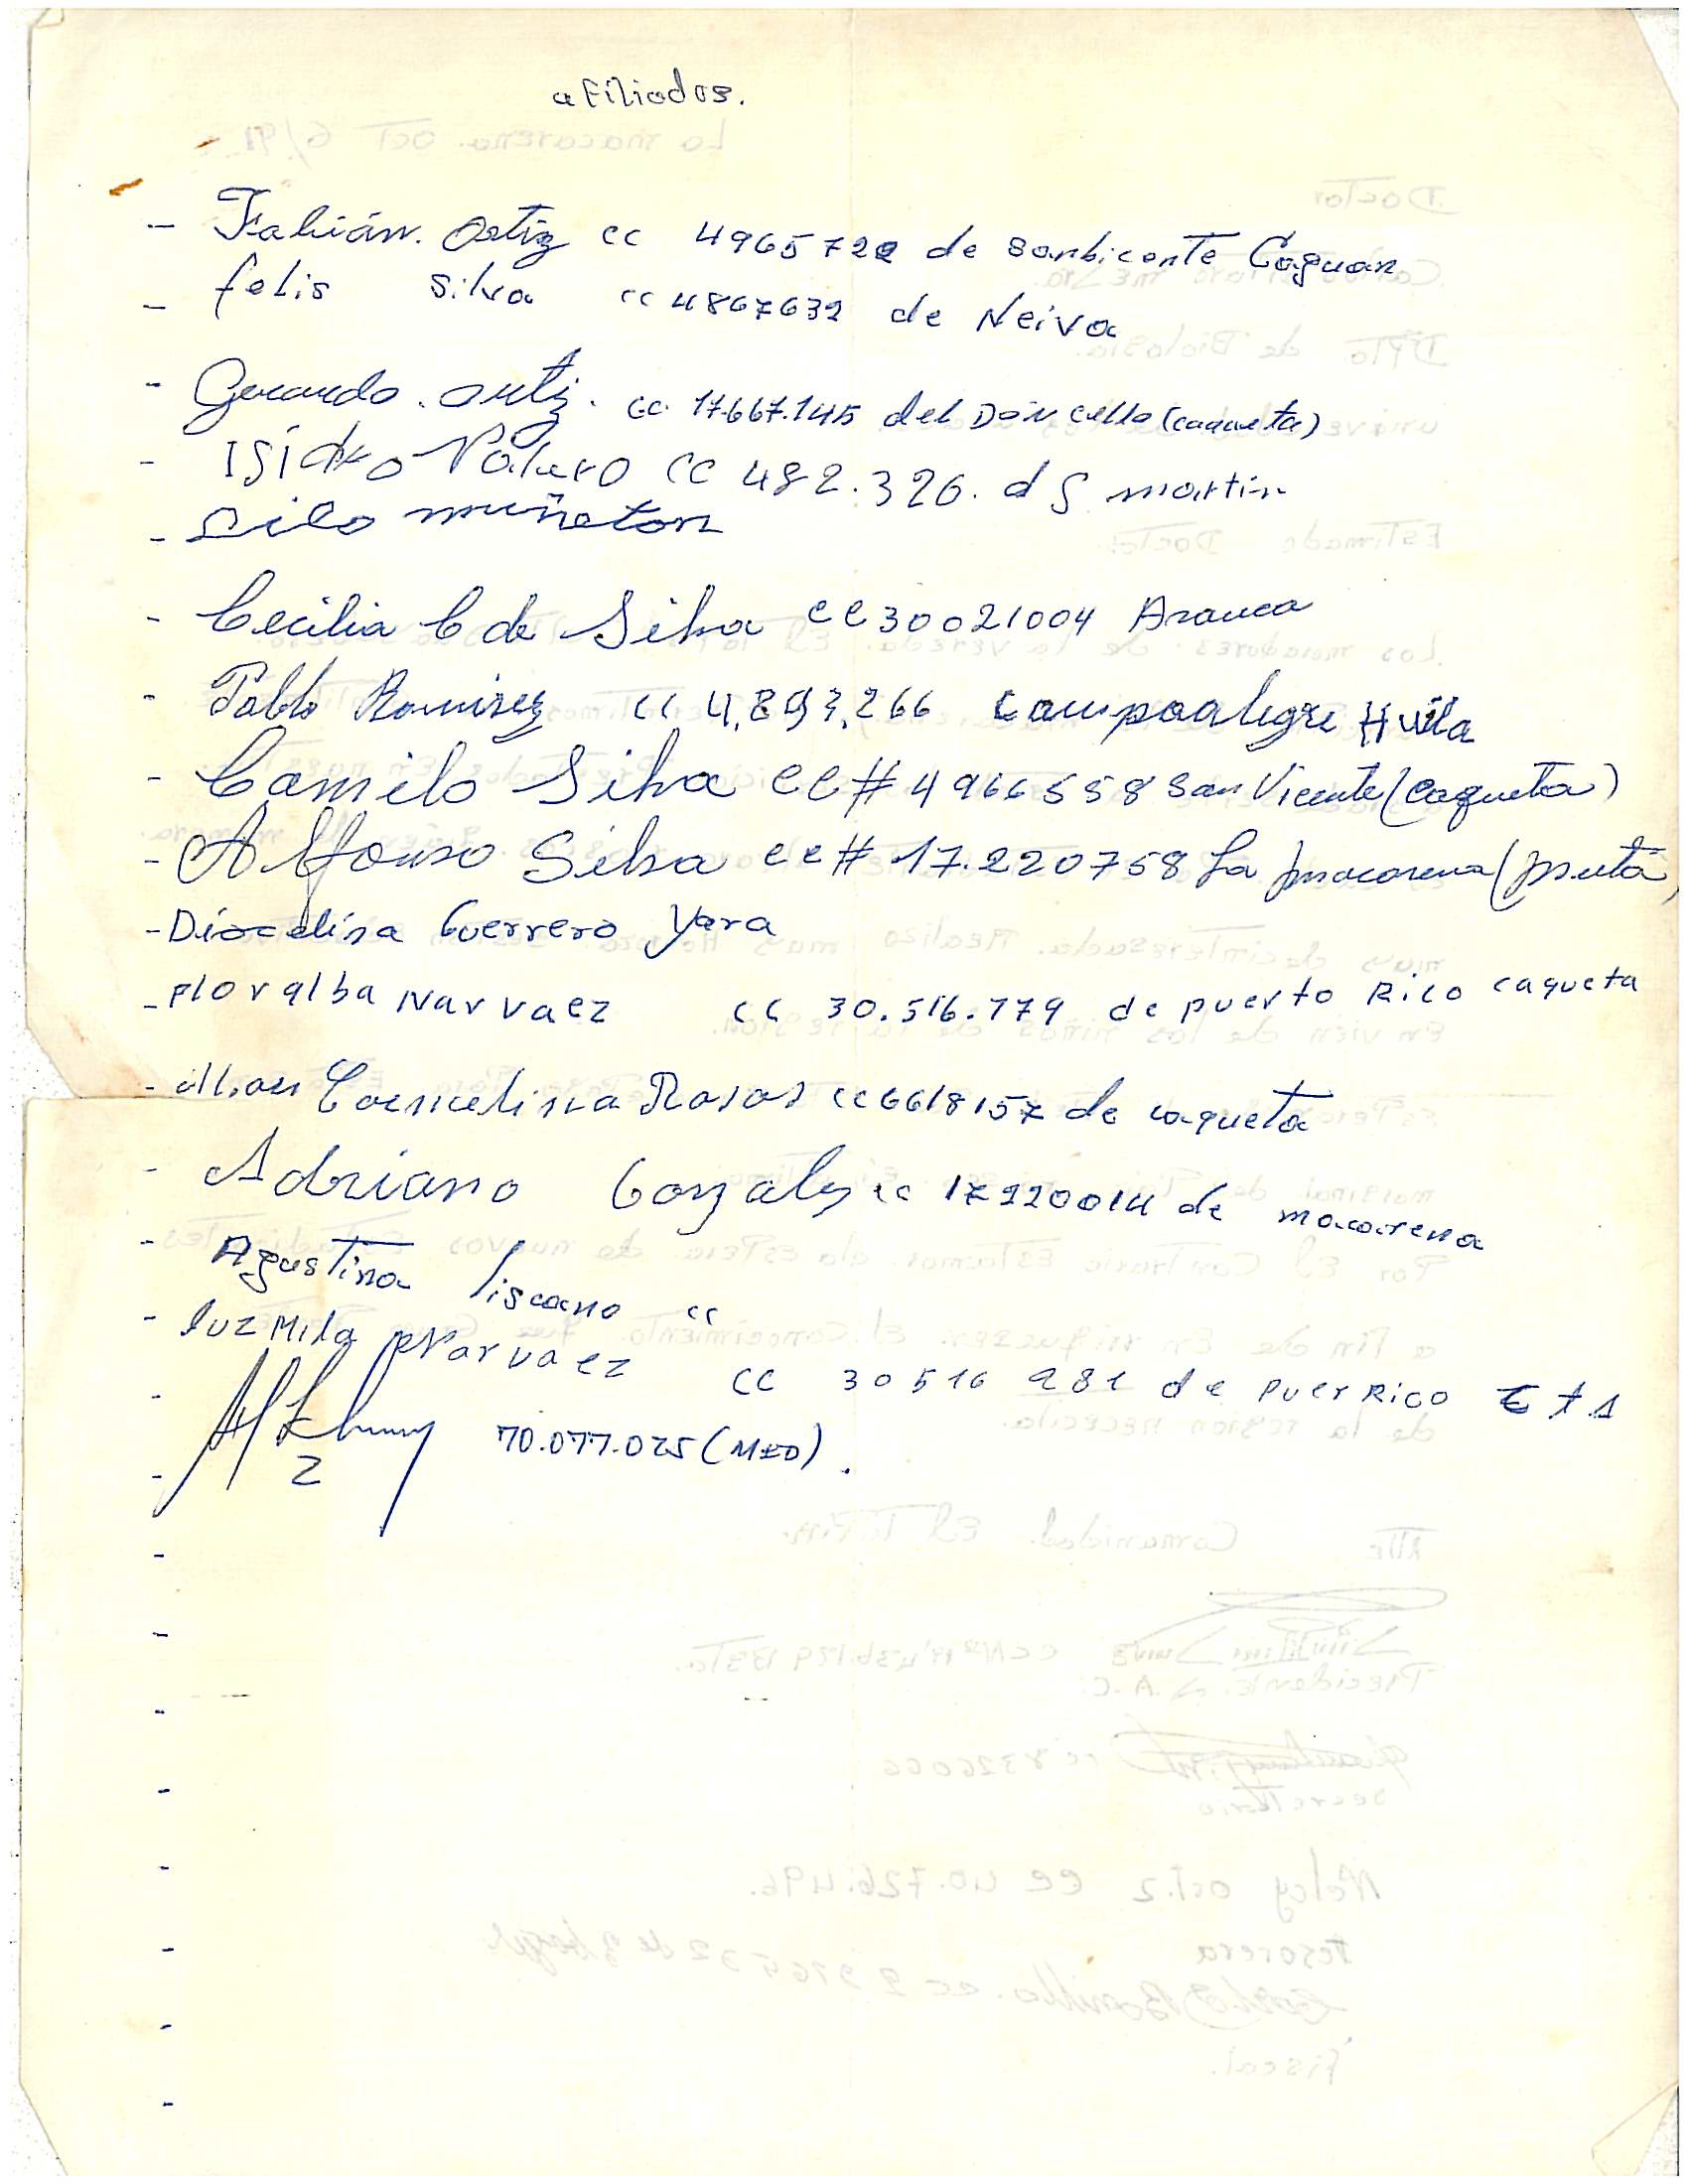 afiliados.
- Fabián. Ortiz cc 4965722 de Sanbicente Caguan
- felis Silva cc 4867632 de Neiva
- Gerardo. Ortiz. cc. 17.667.145 del Doncello (caqueta)
- ISidro Patero CC 482.326. d S martin
- Silo muñeton
- Cecilia C de Silva CC 30021004 Arauca
- Pablo Ramirez cc 4.893.266 Campoalegre Huila
- Camilo Silva CC # 4966558 San Vicente (Caqueta)
- Alfonso Silva cc # 17.220758 La macarena (meta)
- Diocelina Guerrero Yara
- Floralba Narvaez CC 30.516.779 de puerto Rico caqueta
- Carmelina Rosas cc 6618157 de caqueta
- Adriano Gonzales cc 17220014 de macarena
- Agustina liscano cc
- luzMila Narvaez CC 30516 281 de Puer Rico
- 70.077.025 (MED).